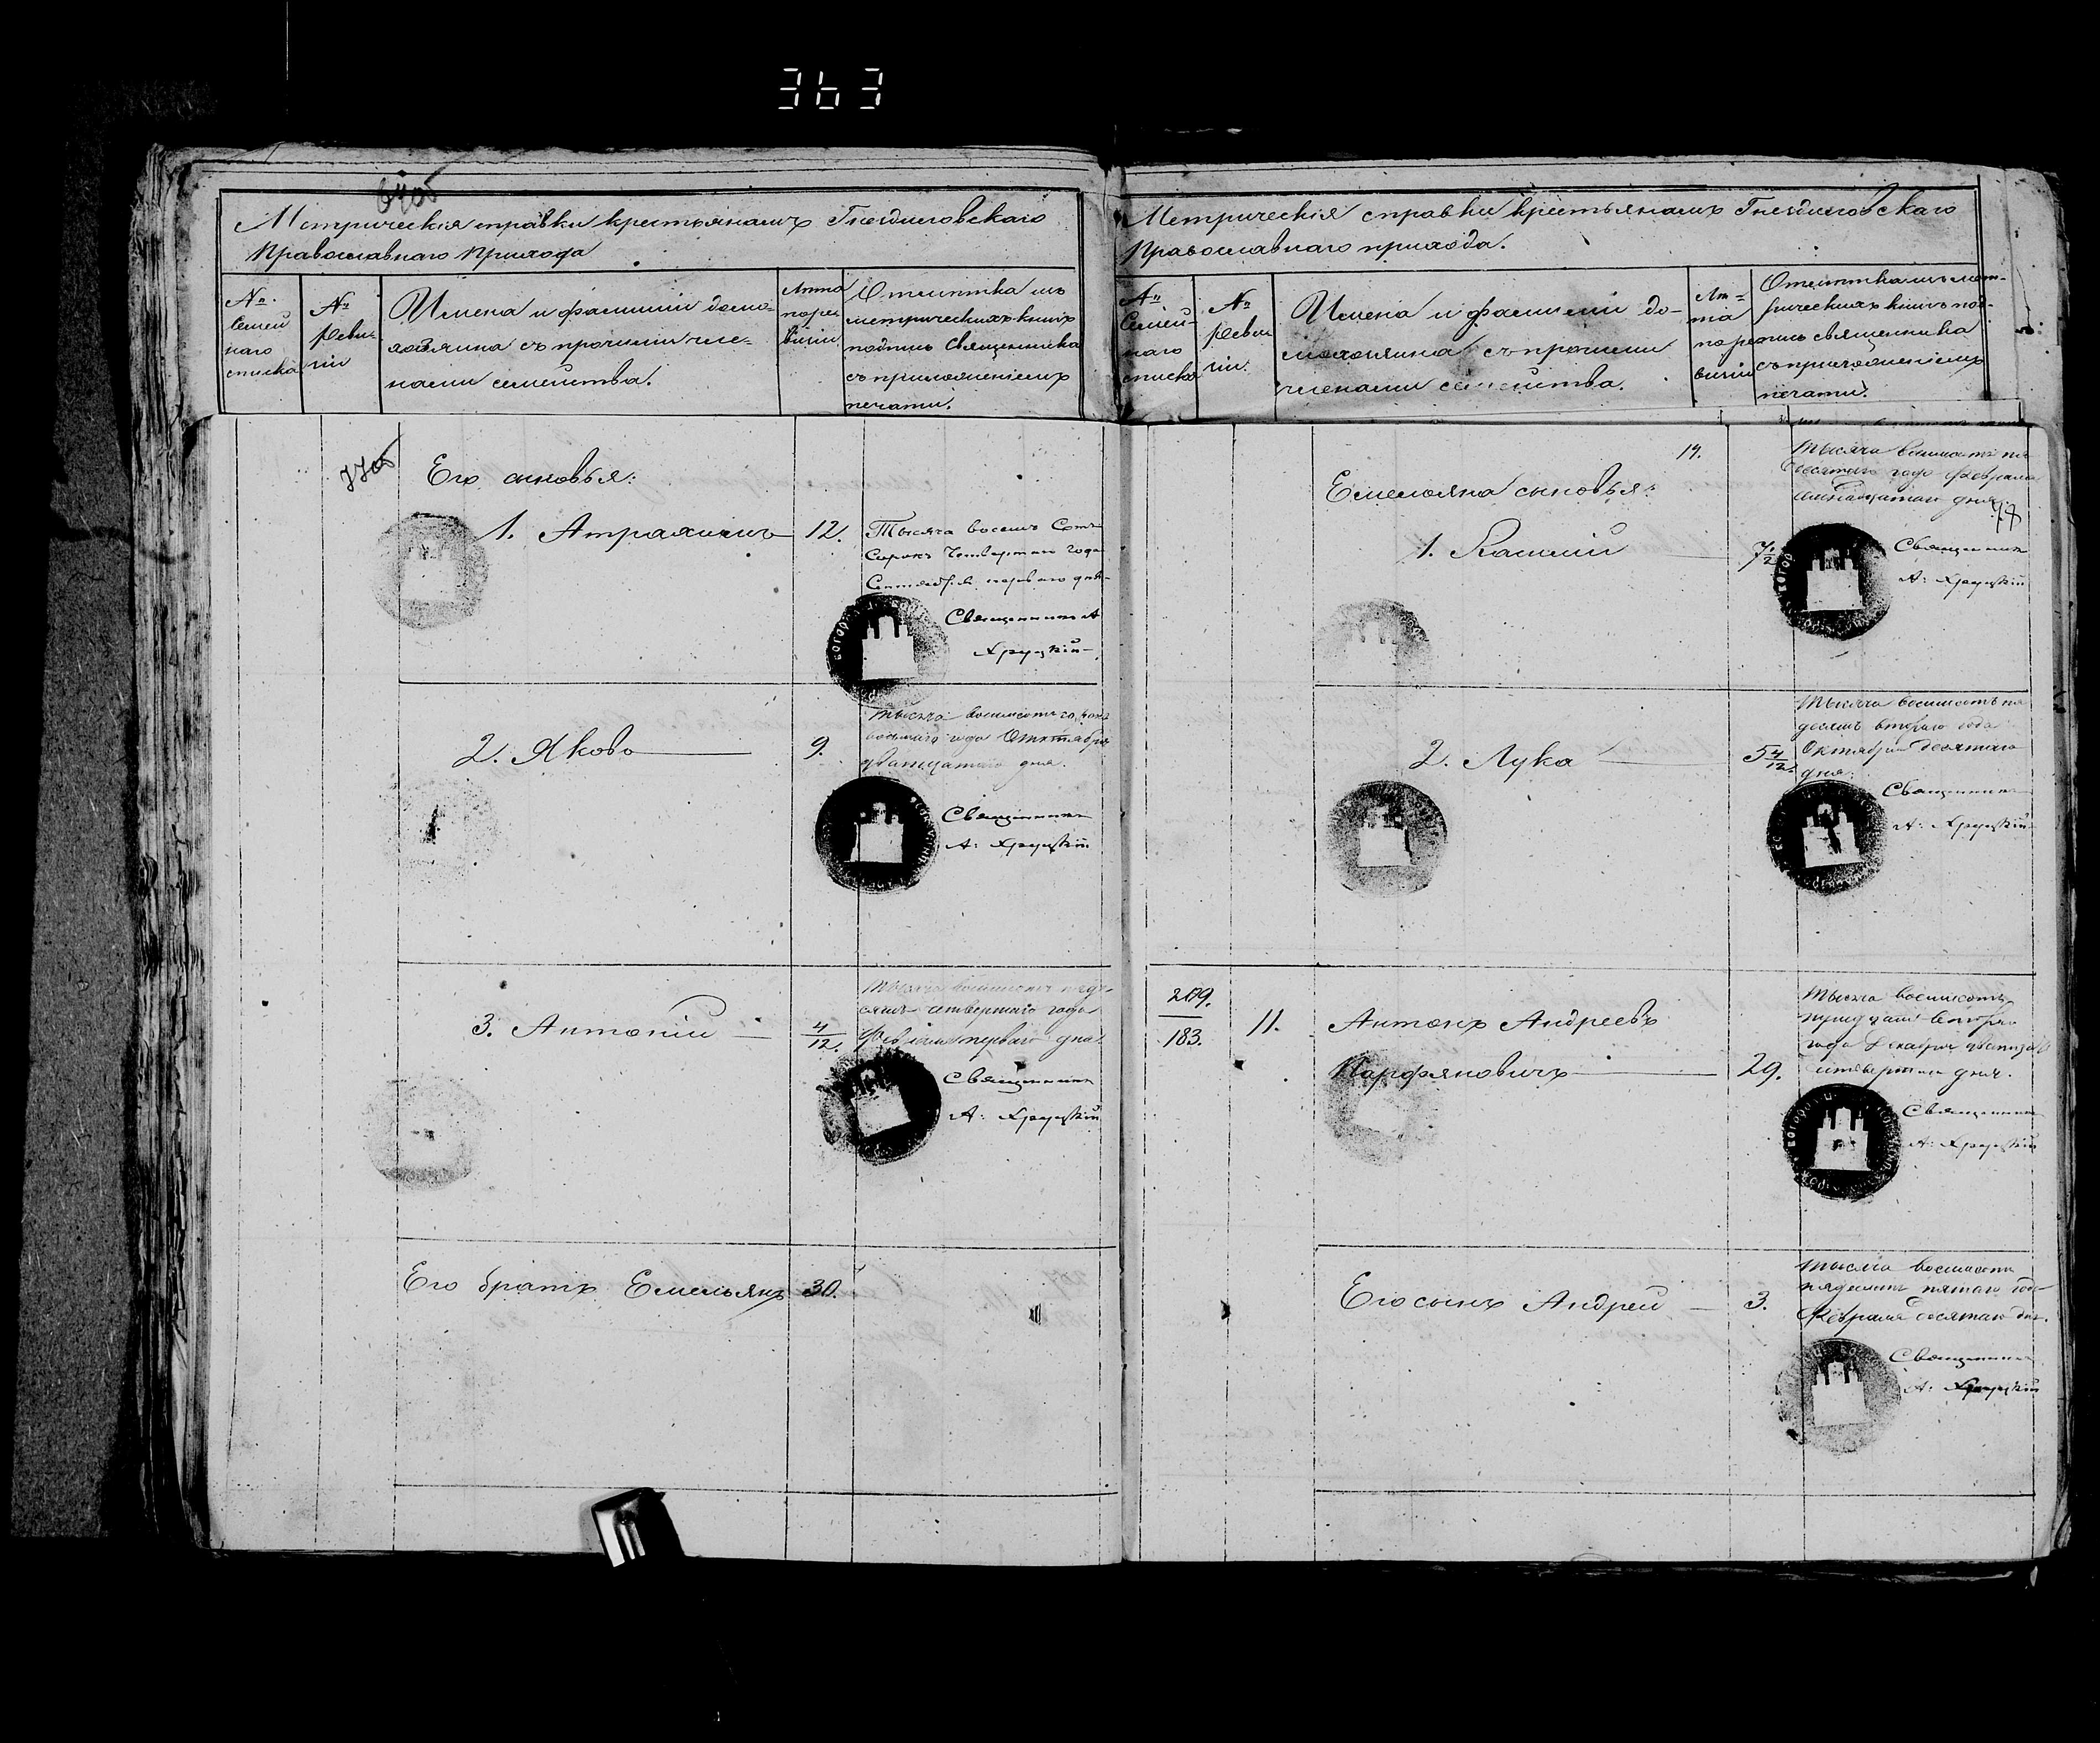 363
Метрическія справки крестьянамъ Гнездиловскаго
Православнаго Прихода
№
Семей
наго
списка
№
Реви-
зіи
Имена и фамиліи домо-
хозяина съ прочими чле-
нами семейства.
Лета
по ре
визіи
Отметка изъ
метрическихъ книгъ
подпись Священника
съ приложеніемъ
печати.
Его сыновья:
1. Атрахимъ 12.
Тысяча восемь Сотъ
Сорокъ Четвертаго года
Сентября перваго дня
Священникъ А
Хруцкій
2. Яковъ 9.
Тысяча восемьсотъ
восьмаго года
двадцатаго дня.
Священникъ
А: Хруцкій
3. Антоній 4/12.
Тысяча восемьсотъ пядь-
сятъ четвертаго года
Февраля перваго дня
Священникъ
А: Хруцкій
Его братъ Емельянъ 30.
Метрическія справки крестьянамъ Гнездиловскаго
Православнаго прихода.
№
Семей-
наго
списка
№
Реви
зіи.
Имена и фамиліи до-
мохозяина съ прочими
членами семейства.
Ле-
та
по ре
визіи
метрическихъ книгъ
подпись священника
съ приложеніемъ
печати.
14.
Емельяна сыновья:
1. Василій 7 1/2
Тысяча восемьсотъ
года Февраля
дня
78
Священникъ
А: Хруцкій
2. Лука 5 4/12.
Тысяча восемьсотъ пя
десятъ втораго года
Октября десятаго
дня.
Священникъ
А: Хруцкій
209.
183.
11.
Антонъ Андреевъ
Парфяновичъ 29.
Тысяча восемьсотъ
тридцать втораго
года Декабря двадцать
четвертаго дня.
Священникъ
А: Хруцкій
Его сынъ Андрей 3.
Тысяча восемьсотъ
пядесятъ пятаго года
Февраля десятаго дня.
Священникъ
А: Хруцкій